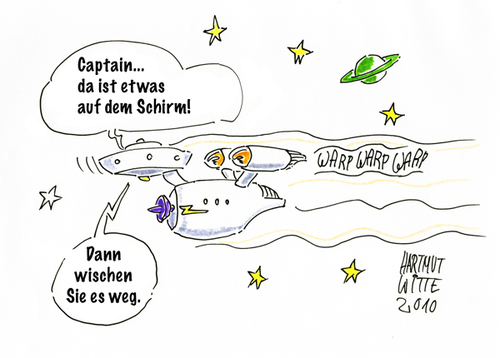 Captain...
da ist etwas
auf dem Schirm!
WARP WARP WARP
Dann
wischen
Sie es weg.
HARTMUT
WITTE
2010